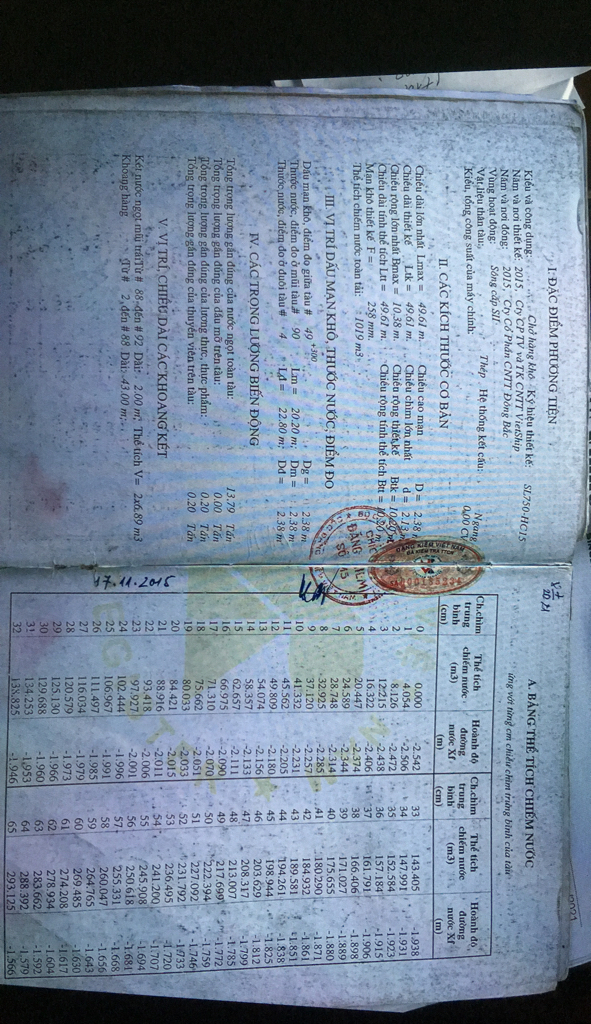 I. ĐẶC ĐIỂM PHƯƠNG TIỆN
Kiểu và công dụng: Chở hàng khô Ký hiệu thiết kế: SL750-HC15
Năm và nơi thiết kế: 2015. Cty CP TV và TK CNTT VietShip
Năm và nơi đóng: 2015. Cty Cổ Phần CNTT Đông Bắc
Vùng hoạt động: Sông cấp SII
Vật liệu thân tàu: Thép Hệ thống kết cấu: Ngang
Kiểu, tổng công suất của máy chính: 0,00 CV
II. CÁC KÍCH THƯỚC CƠ BẢN
Chiều dài lớn nhất Lmax = 49.61 m. Chiều cao mạn D = 2.38
Chiều dài thiết kế Ltk = 49.61 m. Chiều chìm lớn nhất d =
Chiều rộng lớn nhất Bmax = 10.38 m. Chiều rộng thiết kế Btk =
Chiều dài tính thể tích Ltt = 49.61 m. Chiều rộng tính thể tích Btt =
Mạn khô thiết kế F = 258 mm.
Thể tích chiếm nước toàn tải: : 1019 m3
III. VỊ TRÍ DẤU MẠN KHÔ, THƯỚC NƯỚC, ĐIỂM ĐO
Dấu mạn khô điểm đo giữa tàu # 49 +100 Dg = 2.38 m
Thước nước, điểm đo ở mũi tàu # 90 Lm = 20.20 m; Dm = 2.38 m
Thước nước, điểm đo ở đuôi tàu # 4 Lđ = 22.80 m; Dđ = 2.38 m
IV. CÁC TRỌNG LƯỢNG BIẾN ĐỘNG
Tổng trọng lượng gần đúng của nước ngọt toàn tàu: 13.79 Tấn
Tổng trọng lượng gần đúng của dầu mỡ trên tàu: 0.00 Tấn
Tổng trọng lượng gần đúng của lương thực, thực phẩm: 0.20 Tấn
Tổng trọng lượng gần đúng của thuyền viên trên tàu: 0.20 Tấn
V. VỊ TRÍ, CHIỀU DÀI CÁC KHOANG KÉT
Két nước ngọt mũi trái Từ # 88 đến # 92 Dài: 2.00 m, Thể tích V= 2x6.89 m3
Khoang hàng Từ # 2 đến # 88 Dài: 43.00 m.
ĐĂNG KIỂM VIỆT NAM
ĐÃ KIỂM TRA TTĐB
ĐĂNG KIỂM
SỐ 15
17.11.2015
A. BẢNG THỂ TÍCH CHIẾM NƯỚC
ứng với từng cm chiều chìm trung bình của tàu
Ch.chìm trung bình (cm) Thể tích chiếm nước (m3) Hoành độ đường nước Xf (m) Ch.chìm trung bình (cm) Thể tích chiếm nước (m3) Hoành độ đường nước Xf (m)
0 0.000 -2.542 33 143.405 -1.938
1 4.054 -2.506 34 147.991 -1.931
2 8.126 -2.472 35 152.584 -1.923
3 12.215 -2.438 36 157.184 -1.915
4 16.322 -2.406 37 161.791 -1.906
5 20.447 -2.374 38 166.406 -1.898
6 24.589 -2.344 39 171.027 -1.889
7 28.748 -2.314 40 175.655 -1.880
8 32.925 -2.285 41 180.290 -1.871
9 37.120 -2.257 42 184.932 -1.861
10 41.332 -2.231 43 189.581 -1.851
11 45.562 -2.205 44 194.261 -1.838
12 49.809 -2.180 45 198.944 -1.825
13 54.074 -2.156 46 203.629 -1.812
14 58.357 -2.133 47 208.317 -1.799
15 62.657 -2.111 48 213.007 -1.785
16 66.975 -2.090 49 217.699 -1.772
17 71.310 -2.070 50 222.394 -1.759
18 75.662 -2.051 51 227.092 -1.746
19 80.033 -2.033 52 231.792 -1.733
20 84.421 -2.015 53 236.495 -1.720
21 88.916 -2.011 54 241.200 -1.707
22 93.418 -2.006 55 245.908 -1.694
23 97.927 -2.001 56 250.618 -1.681
24 102.444 -1.996 57 255.331 -1.668
25 106.967 -1.991 58 260.047 -1.656
26 111.497 -1.985 59 264.765 -1.643
27 116.034 -1.979 60 269.485 -1.630
28 120.579 -1.973 61 274.208 -1.617
29 125.130 -1.966 62 278.934 -1.604
30 129.688 -1.960 63 283.662 -1.592
31 134.253 -1.953 64 288.392 -1.579
32 138.825 -1.946 65 293.125 -1.566